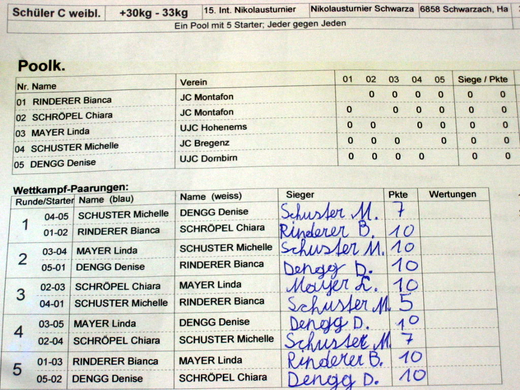 Schüler C weibl. +30kg - 33kg 15. Int. Nikolausturnier Nikolausturnier Schwarza 6858 Schwarzach, Ha
Ein Pool mit 5 Starter; Jeder gegen Jeden
Poolk.
Nr. Name Verein 01 02 03 04 05 Siege / Pkte
01 RINDERER Bianca JC Montafon 0 0 0 0 0 0
02 SCHRÖPEL Chiara JC Montafon 0 0 0 0 0 0
03 MAYER Linda UJC Hohenems 0 0 0 0 0 0
04 SCHUSTER Michelle JC Bregenz 0 0 0 0 0 0
05 DENGG Denise UJC Dornbirn 0 0 0 0 0 0
Wettkampf-Paarungen:
Runde/Starter Name (blau) Name (weiss) Sieger Pkte Wertungen
1 04-05 SCHUSTER Michelle DENGG Denise Schuster M. 7
01-02 RINDERER Bianca SCHRÖPEL Chiara Rinderer B. 10
2 03-04 MAYER Linda SCHUSTER Michelle Schuster M. 10
05-01 DENGG Denise RINDERER Bianca Dengg D. 10
3 02-03 SCHRÖPEL Chiara MAYER Linda Mayer L. 10
04-01 SCHUSTER Michelle RINDERER Bianca Schuster M. 5
4 03-05 MAYER Linda DENGG Denise Dengg D. 10
02-04 SCHRÖPEL Chiara SCHUSTER Michelle Schuster M. 7
5 01-03 RINDERER Bianca MAYER Linda Rinderer B. 10
05-02 DENGG Denise SCHRÖPEL Chiara Dengg D. 10